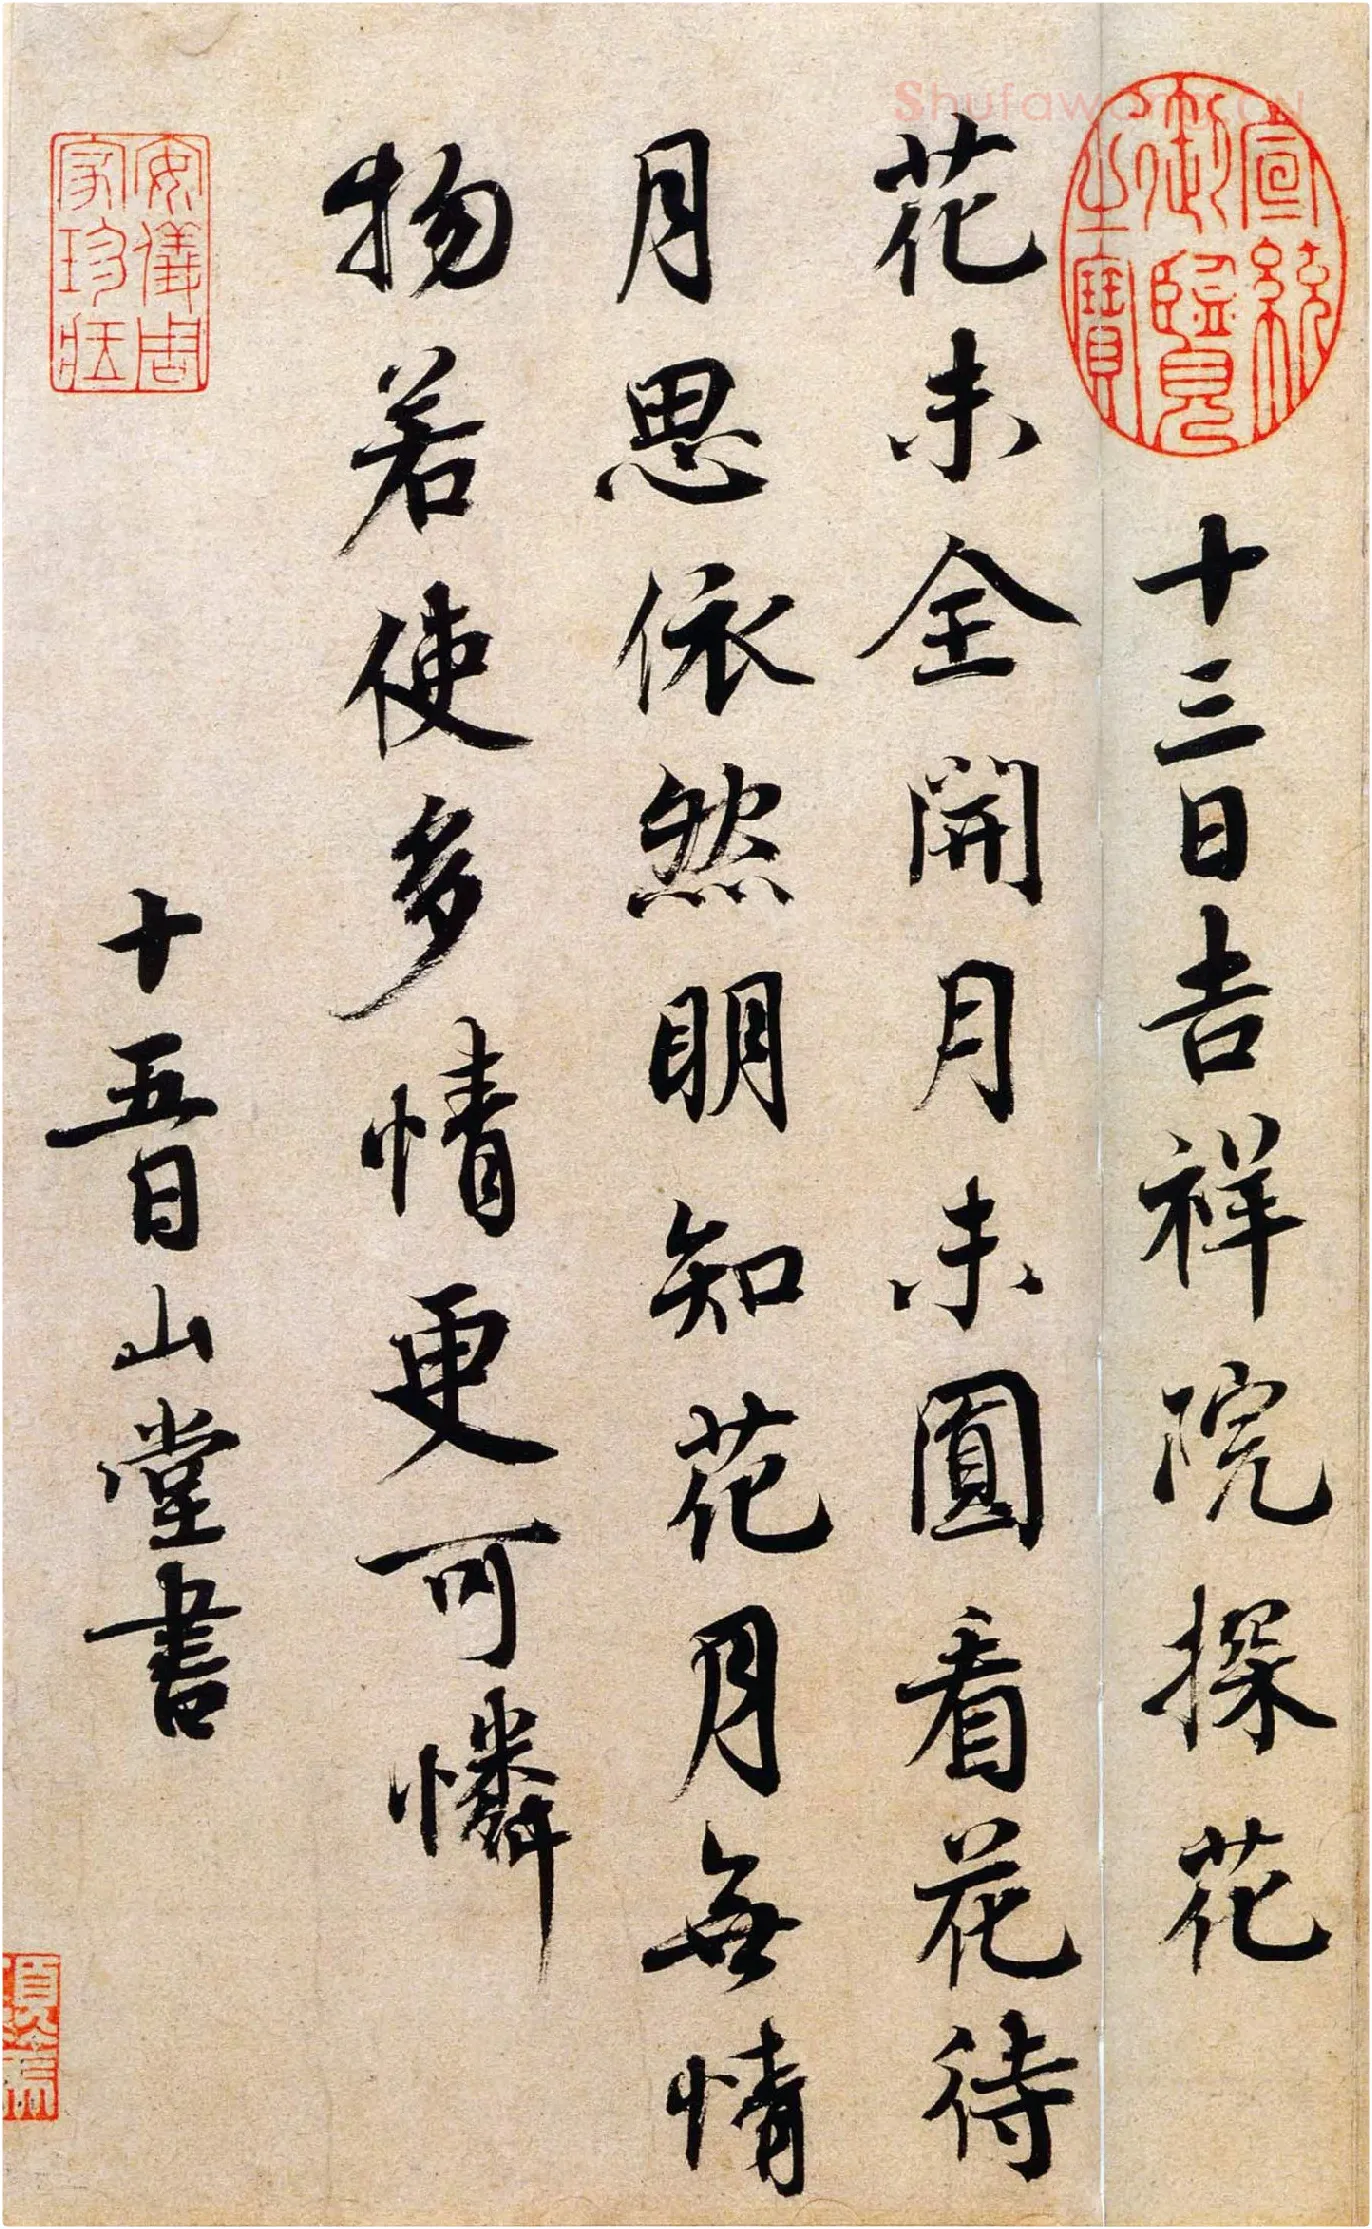 Shufawang.CN
宣統
御覽
之寶
十三日吉祥院探花
花未全開月未圓看花待
月思依然明知花月無情
物若使多情更可憐
十五日山堂書
安儀周
家珍藏